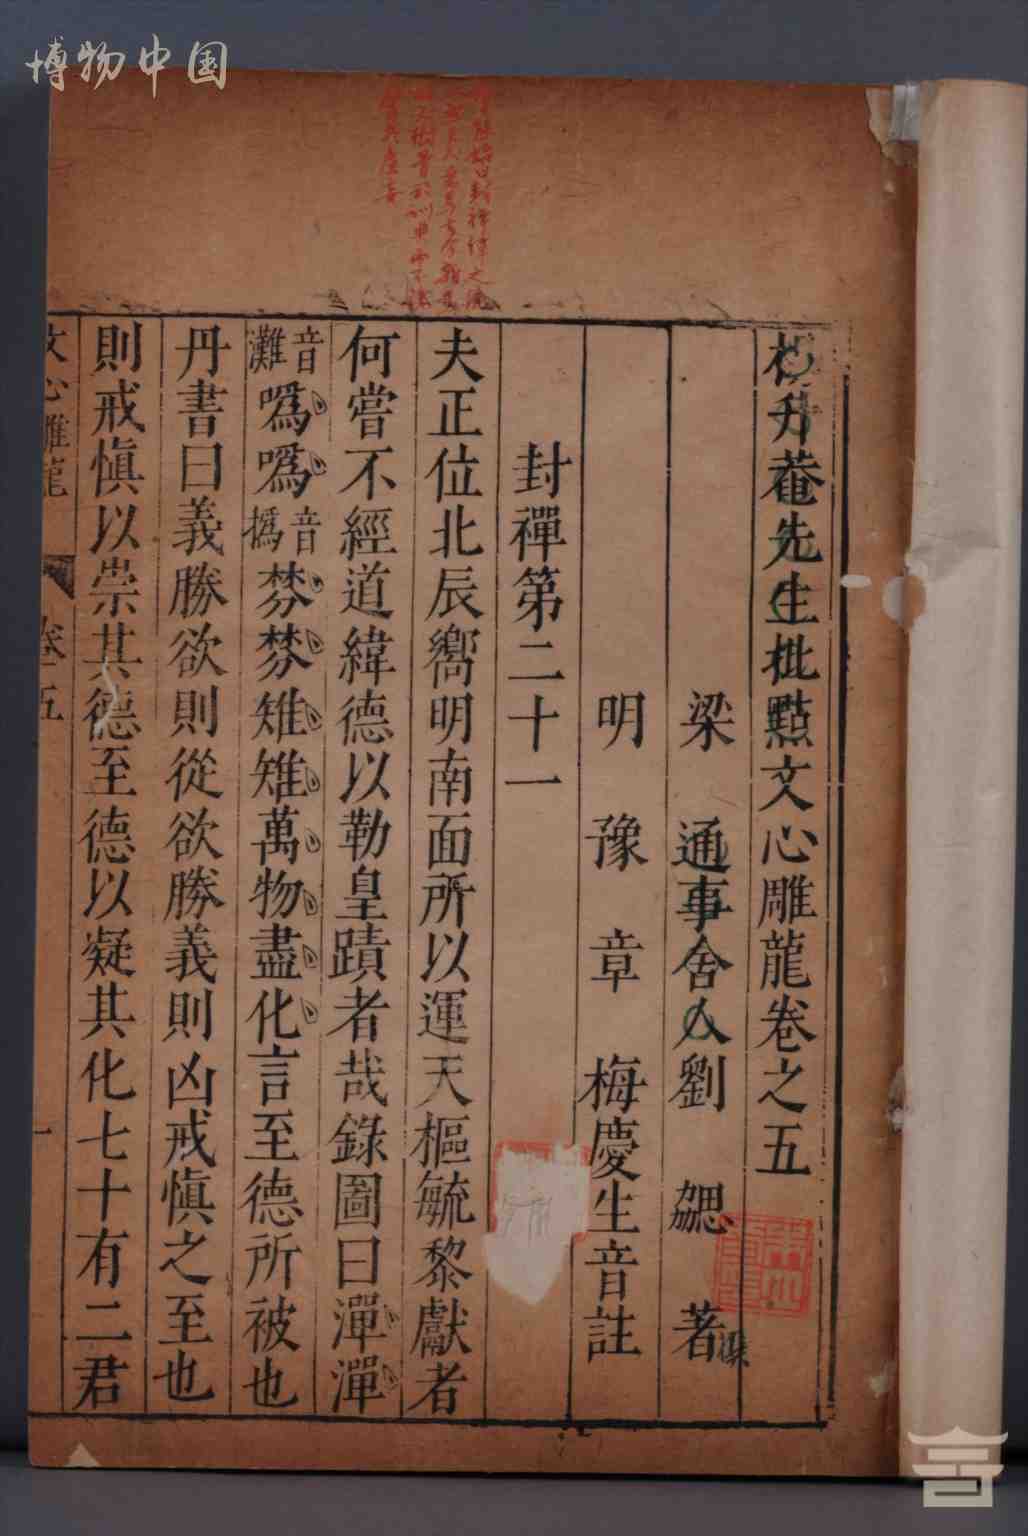 博物中国
楊升菴先生批點文心雕龍卷之五
梁 通事舍人劉 勰 著
明 豫 章 梅慶生音註
封禪第二十一
夫正位北辰嚮明南面所以運天樞毓黎獻者
何嘗不經道緯德以勒皇蹟者哉錄圖曰潬潬
音灘噅噅音撝棼棼雉雉萬物盡化言至德所被也
丹書曰義勝欲則從欲勝義則凶戒慎之至也
則戒慎以崇其德至德以凝其化七十有二君
文心雕龍 卷五 一